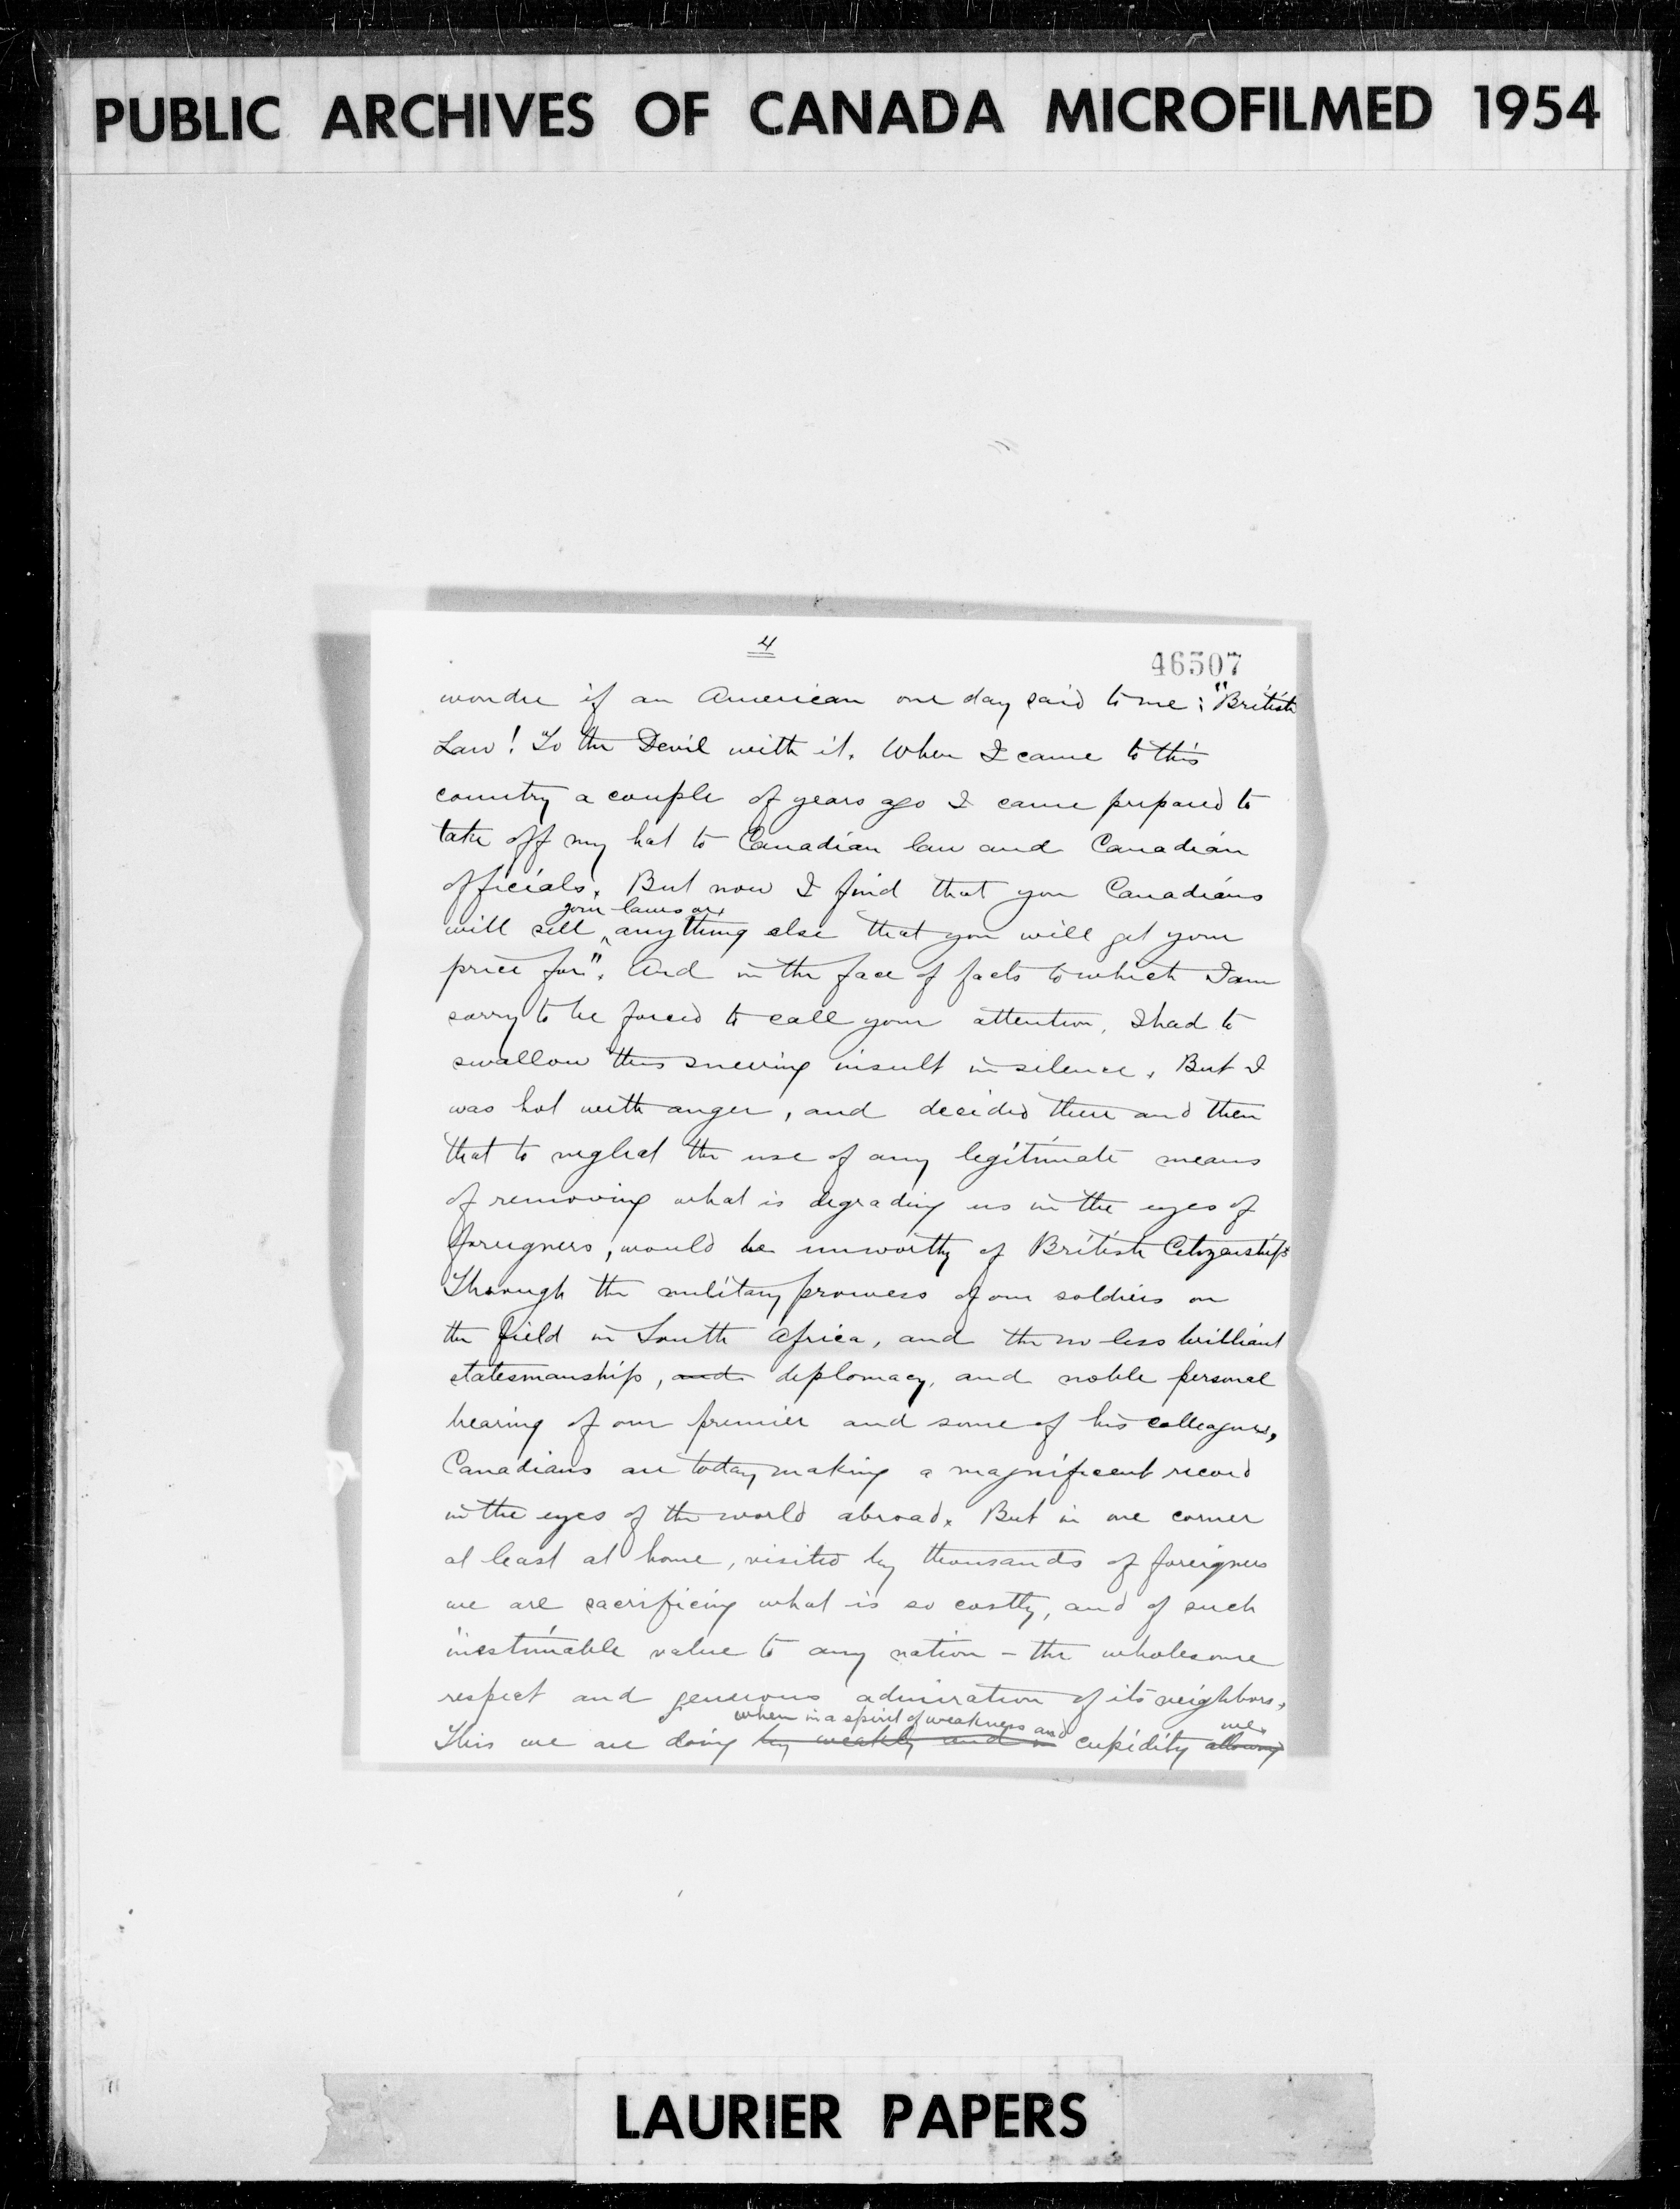 PUBLIC ARCHIVES OF CANADA MICROFILMED 1954
4
46507
wonder if an American one day said to me: "British
Law! To the Devil with it. When I came to this
country a couple of years ago I came prepared to
take off my hat to Canadian law and Canadian
officials. But now I find that you Canadians
your laws or
will sell ^ anything else that you will get your
price for". And in the face of facts to which I am
sorry to be forced to call your attention, I had to
swallow this sneering insult in silence. But I
was hot with anger, and decided there and then
that to neglect the use of any legitimate means
of removing what is degrading us in the eyes of
foreigners, would be unworthy of British Citizenship
Through the military prowess of our soldiers on
the field in South Africa, and the no less brilliant
statesmanship, and diplomacy, and noble personal
bearing of our premier and some of his colleagues,
Canadians are today making a magnificent record
in the eyes of the world abroad. But in one corner
at least at home, visited by thousands of foreigners
we are sacrificing what is so costly, and of such
inestimable value to any nation - the wholesome
respect and generous admiration of its neighbors,
when in a spirit of weakness and we
This we are doing by weakly and in cupidity allowing
LAURIER PAPERS